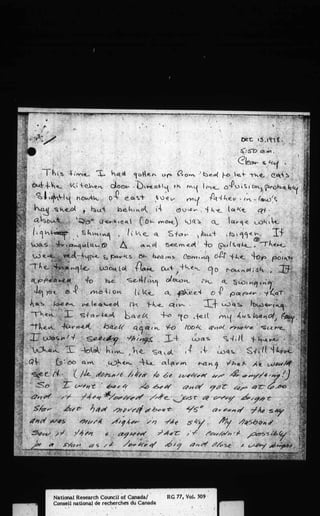 DEC 13, 1978.
5:50 a.m.
Clear sky
This time I had gotten up from bed to let the cats
out the kitchen door. Directly in my line of vision, probably
slightly north of east over my father-in-law's
hay shed, but behind it over the lake at
about 20° vertical (or more) was a large white
light shining like a star, but bigger. It
was triangular △ and seemed to pulsate. There
were red-type sparks or beams coming off the top point
The triangle would flare out, then go roundish. It
appeared to be settling down in a swinging
type of motion like a piece of paper that
has been released in the air. It was lowering
Then I started back to go tell my husband,
then turned back again to look and make sure
I wasn't seeing things. It was still there.
When I told him, he said if it was still there
at 6:00 am when the alarm rang that he would
see it. (He doesn't like to be woken up for anything!)
So I went back to bed and got up at 6:00
and it then looked like just a very bright
star but had moved about 45° around the sky
and was much higher in the sky. My husband
saw it then & agreed that it couldn't possibly
be a star as it looked big and close & very bright
National Research Council of Canada/ RG 77, Vol. 309
Conseil national de recherches du Canada